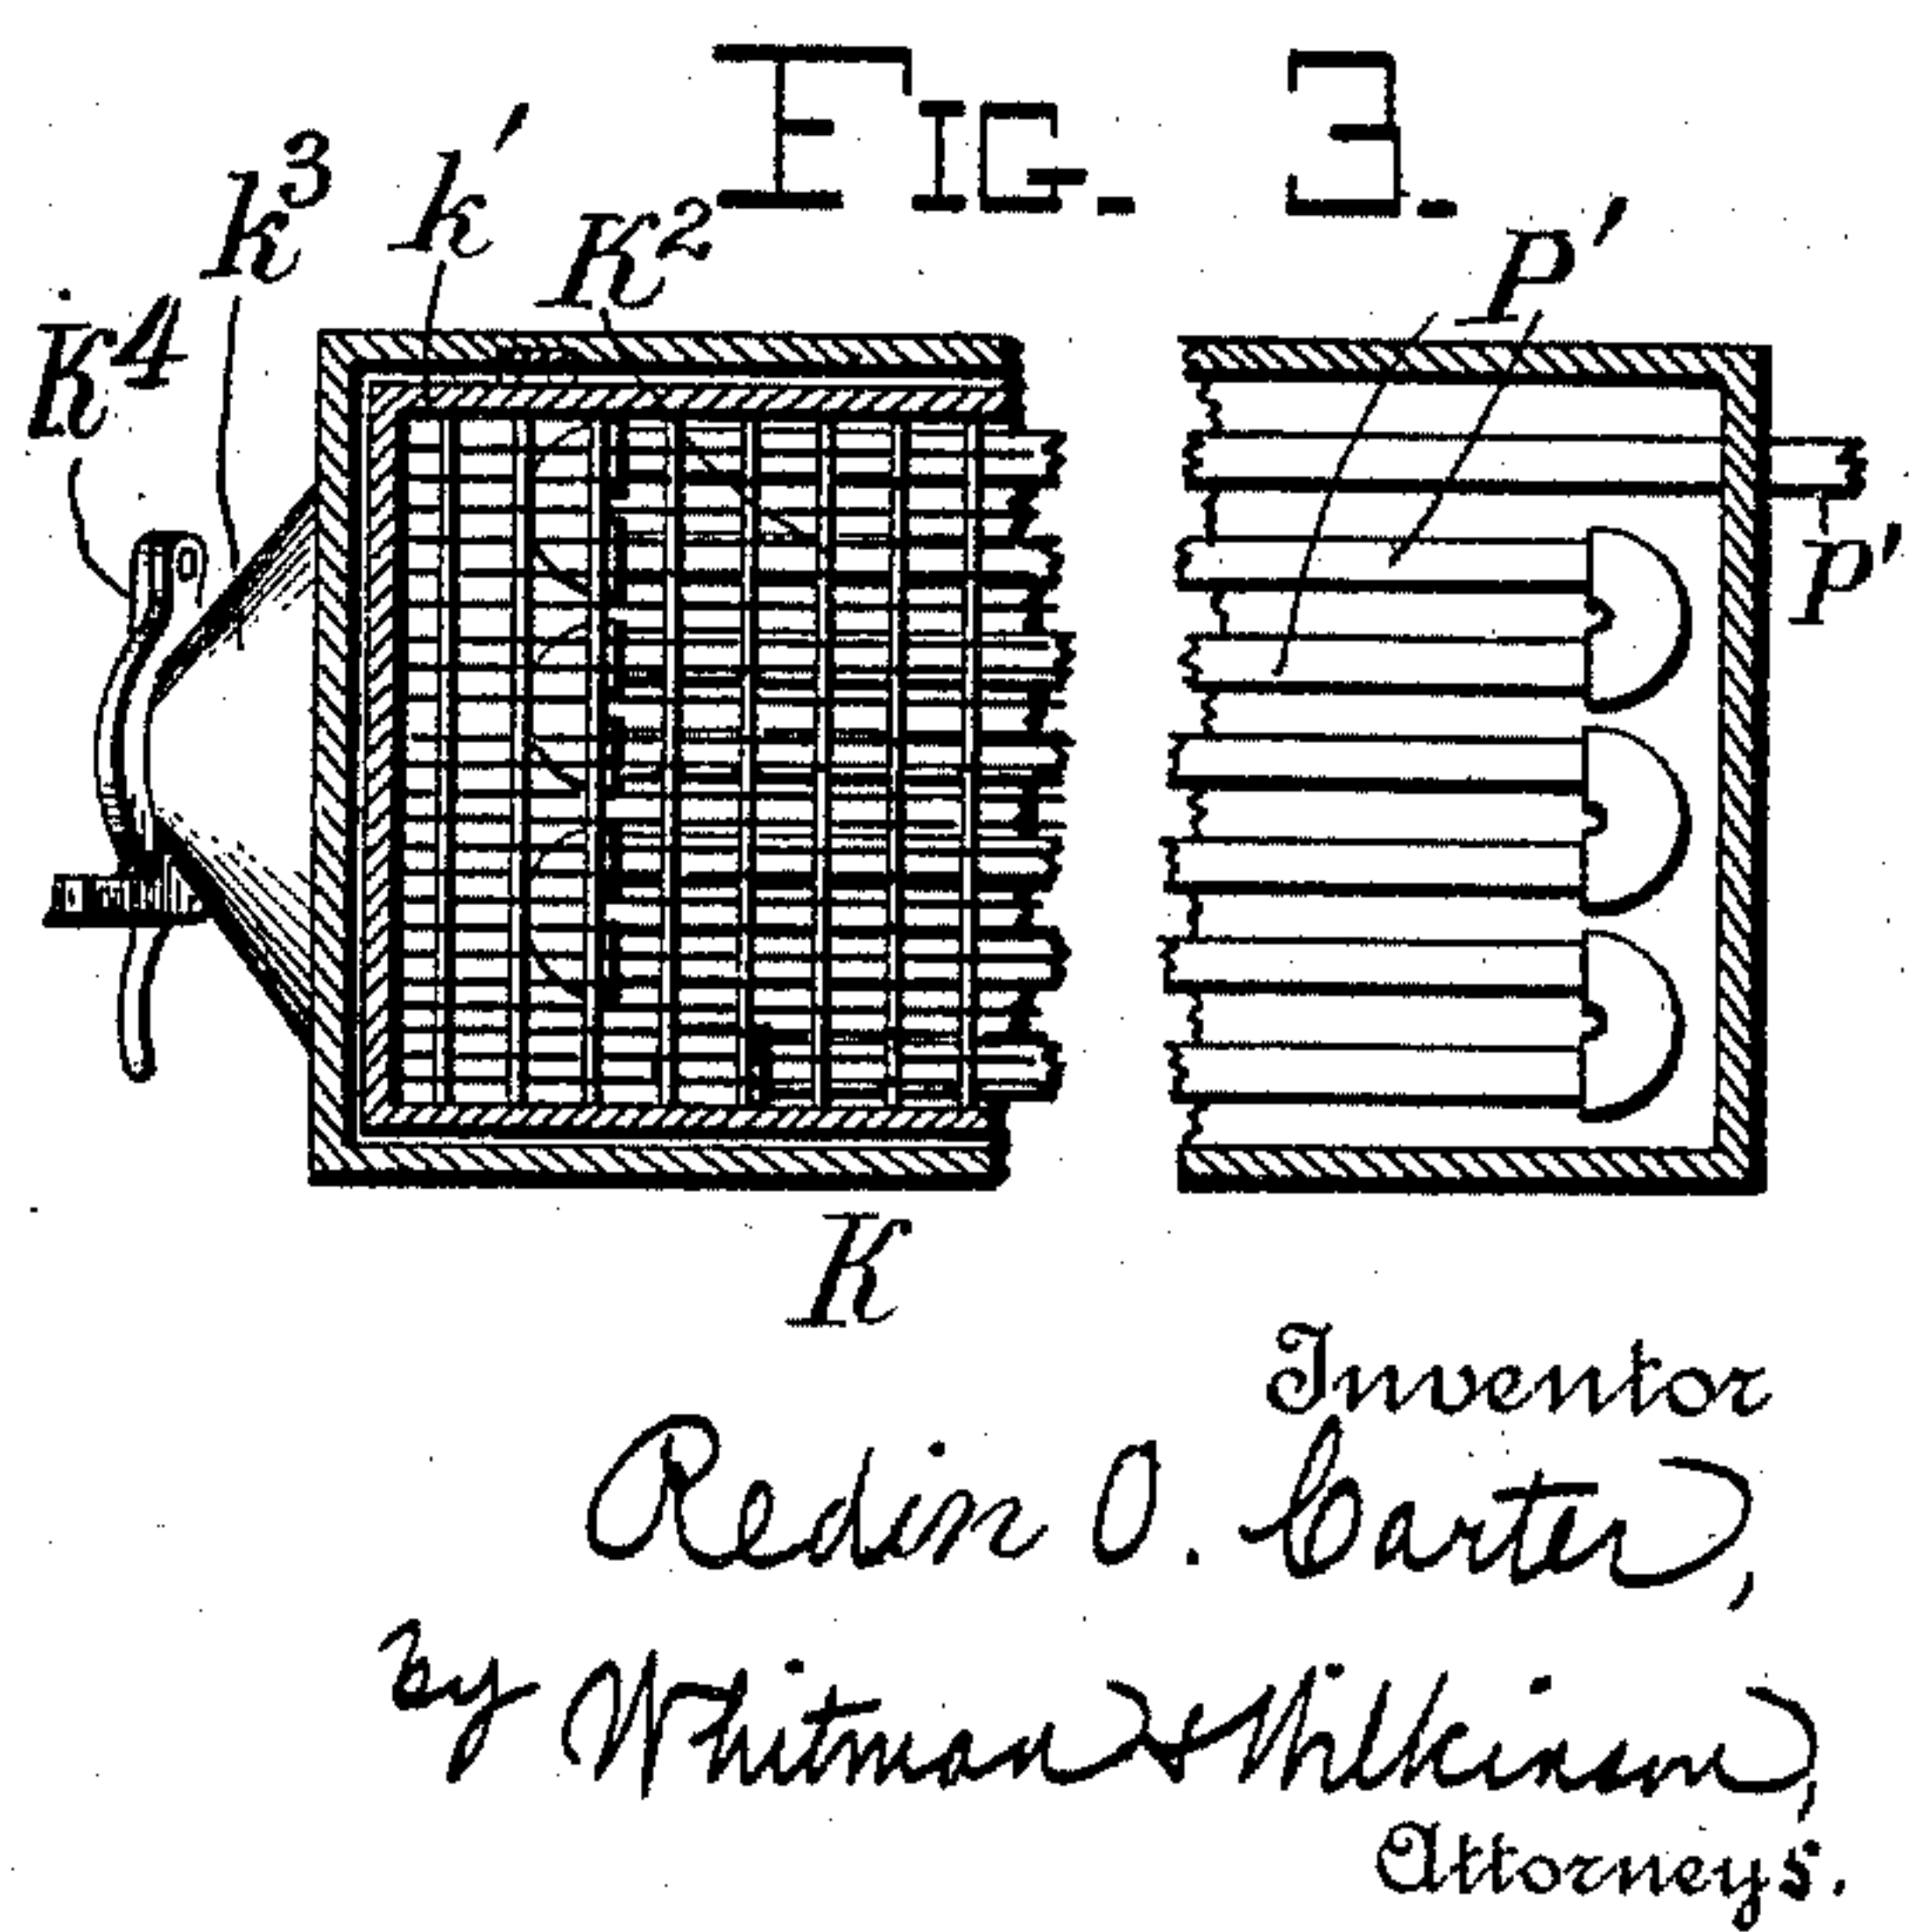 FIG. 3.
k³ k′ K² P′
K⁴
p′
K
Inventor
Redin O. Carter,
by Whitman & Wilkinson,
Attorneys.